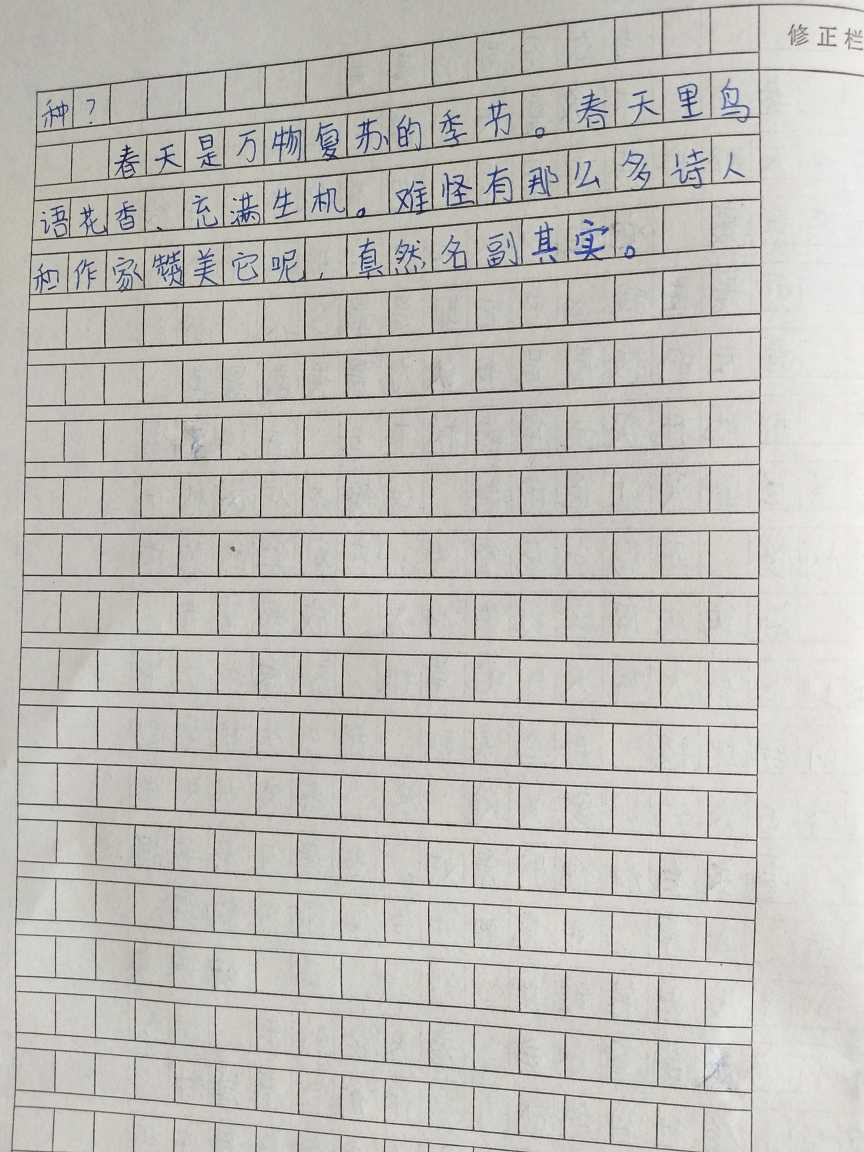 修正栏
种？
春天是万物复苏的季节。春天里鸟
语花香、充满生机。难怪有那么多诗人
和作家赞美它呢，真然名副其实。